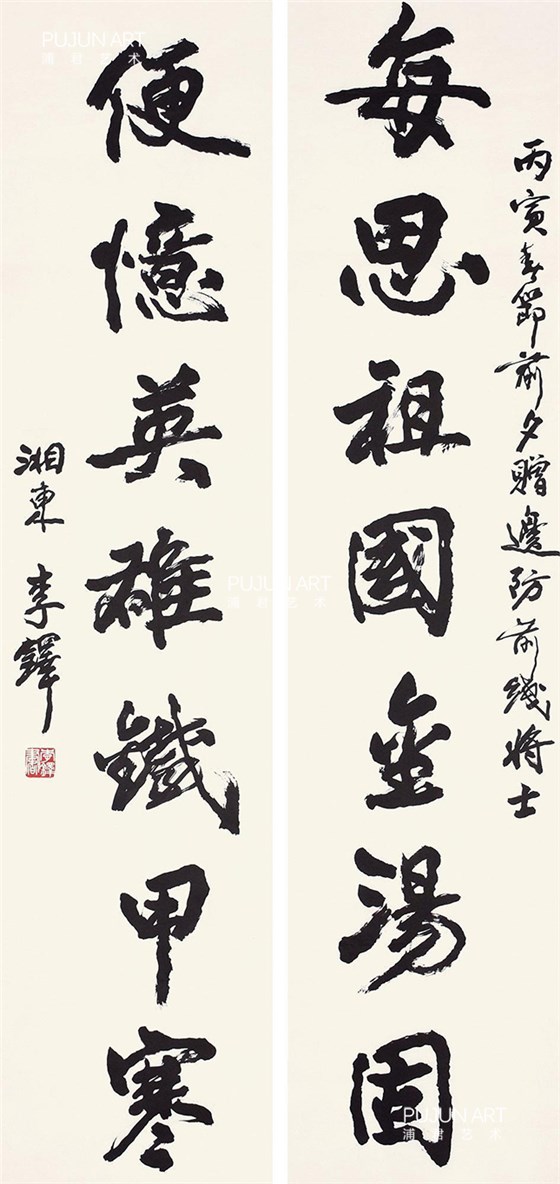 丙寅春節前夕贈邊防前綫將士
每思祖國金湯固
便憶英雄鐵甲寒
湘東 李鐸
PUJUN ART
浦君艺术
PUJUN ART
浦君艺术
PUJUN ART
浦君艺术